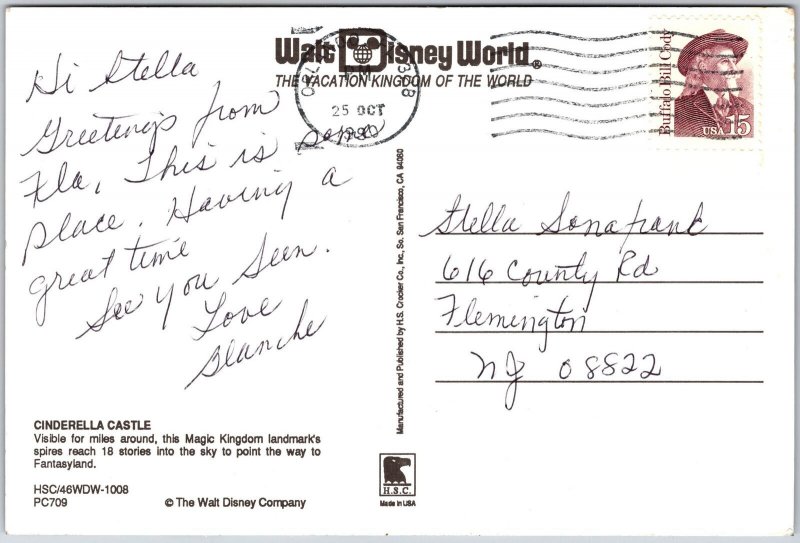 Walt Disney World®
THE VACATION KINGDOM OF THE WORLD
25 OCT
Buffalo Bill Cody
USA 15
Hi Stella
Greetings from
Fla, This is some
place. Having a
great time
See you Seen.
Love
Blanche
Manufactured and Published by H.S. Crocker Co., Inc., So. San Francisco, CA 94080
Stella Sonafrank
616 County Rd
Flemington
NJ 08822
CINDERELLA CASTLE
Visible for miles around, this Magic Kingdom landmark's
spires reach 18 stories into the sky to point the way to
Fantasyland.
HSC/46WDW-1008
PC709 © The Walt Disney Company
H.S.C.
Made in USA